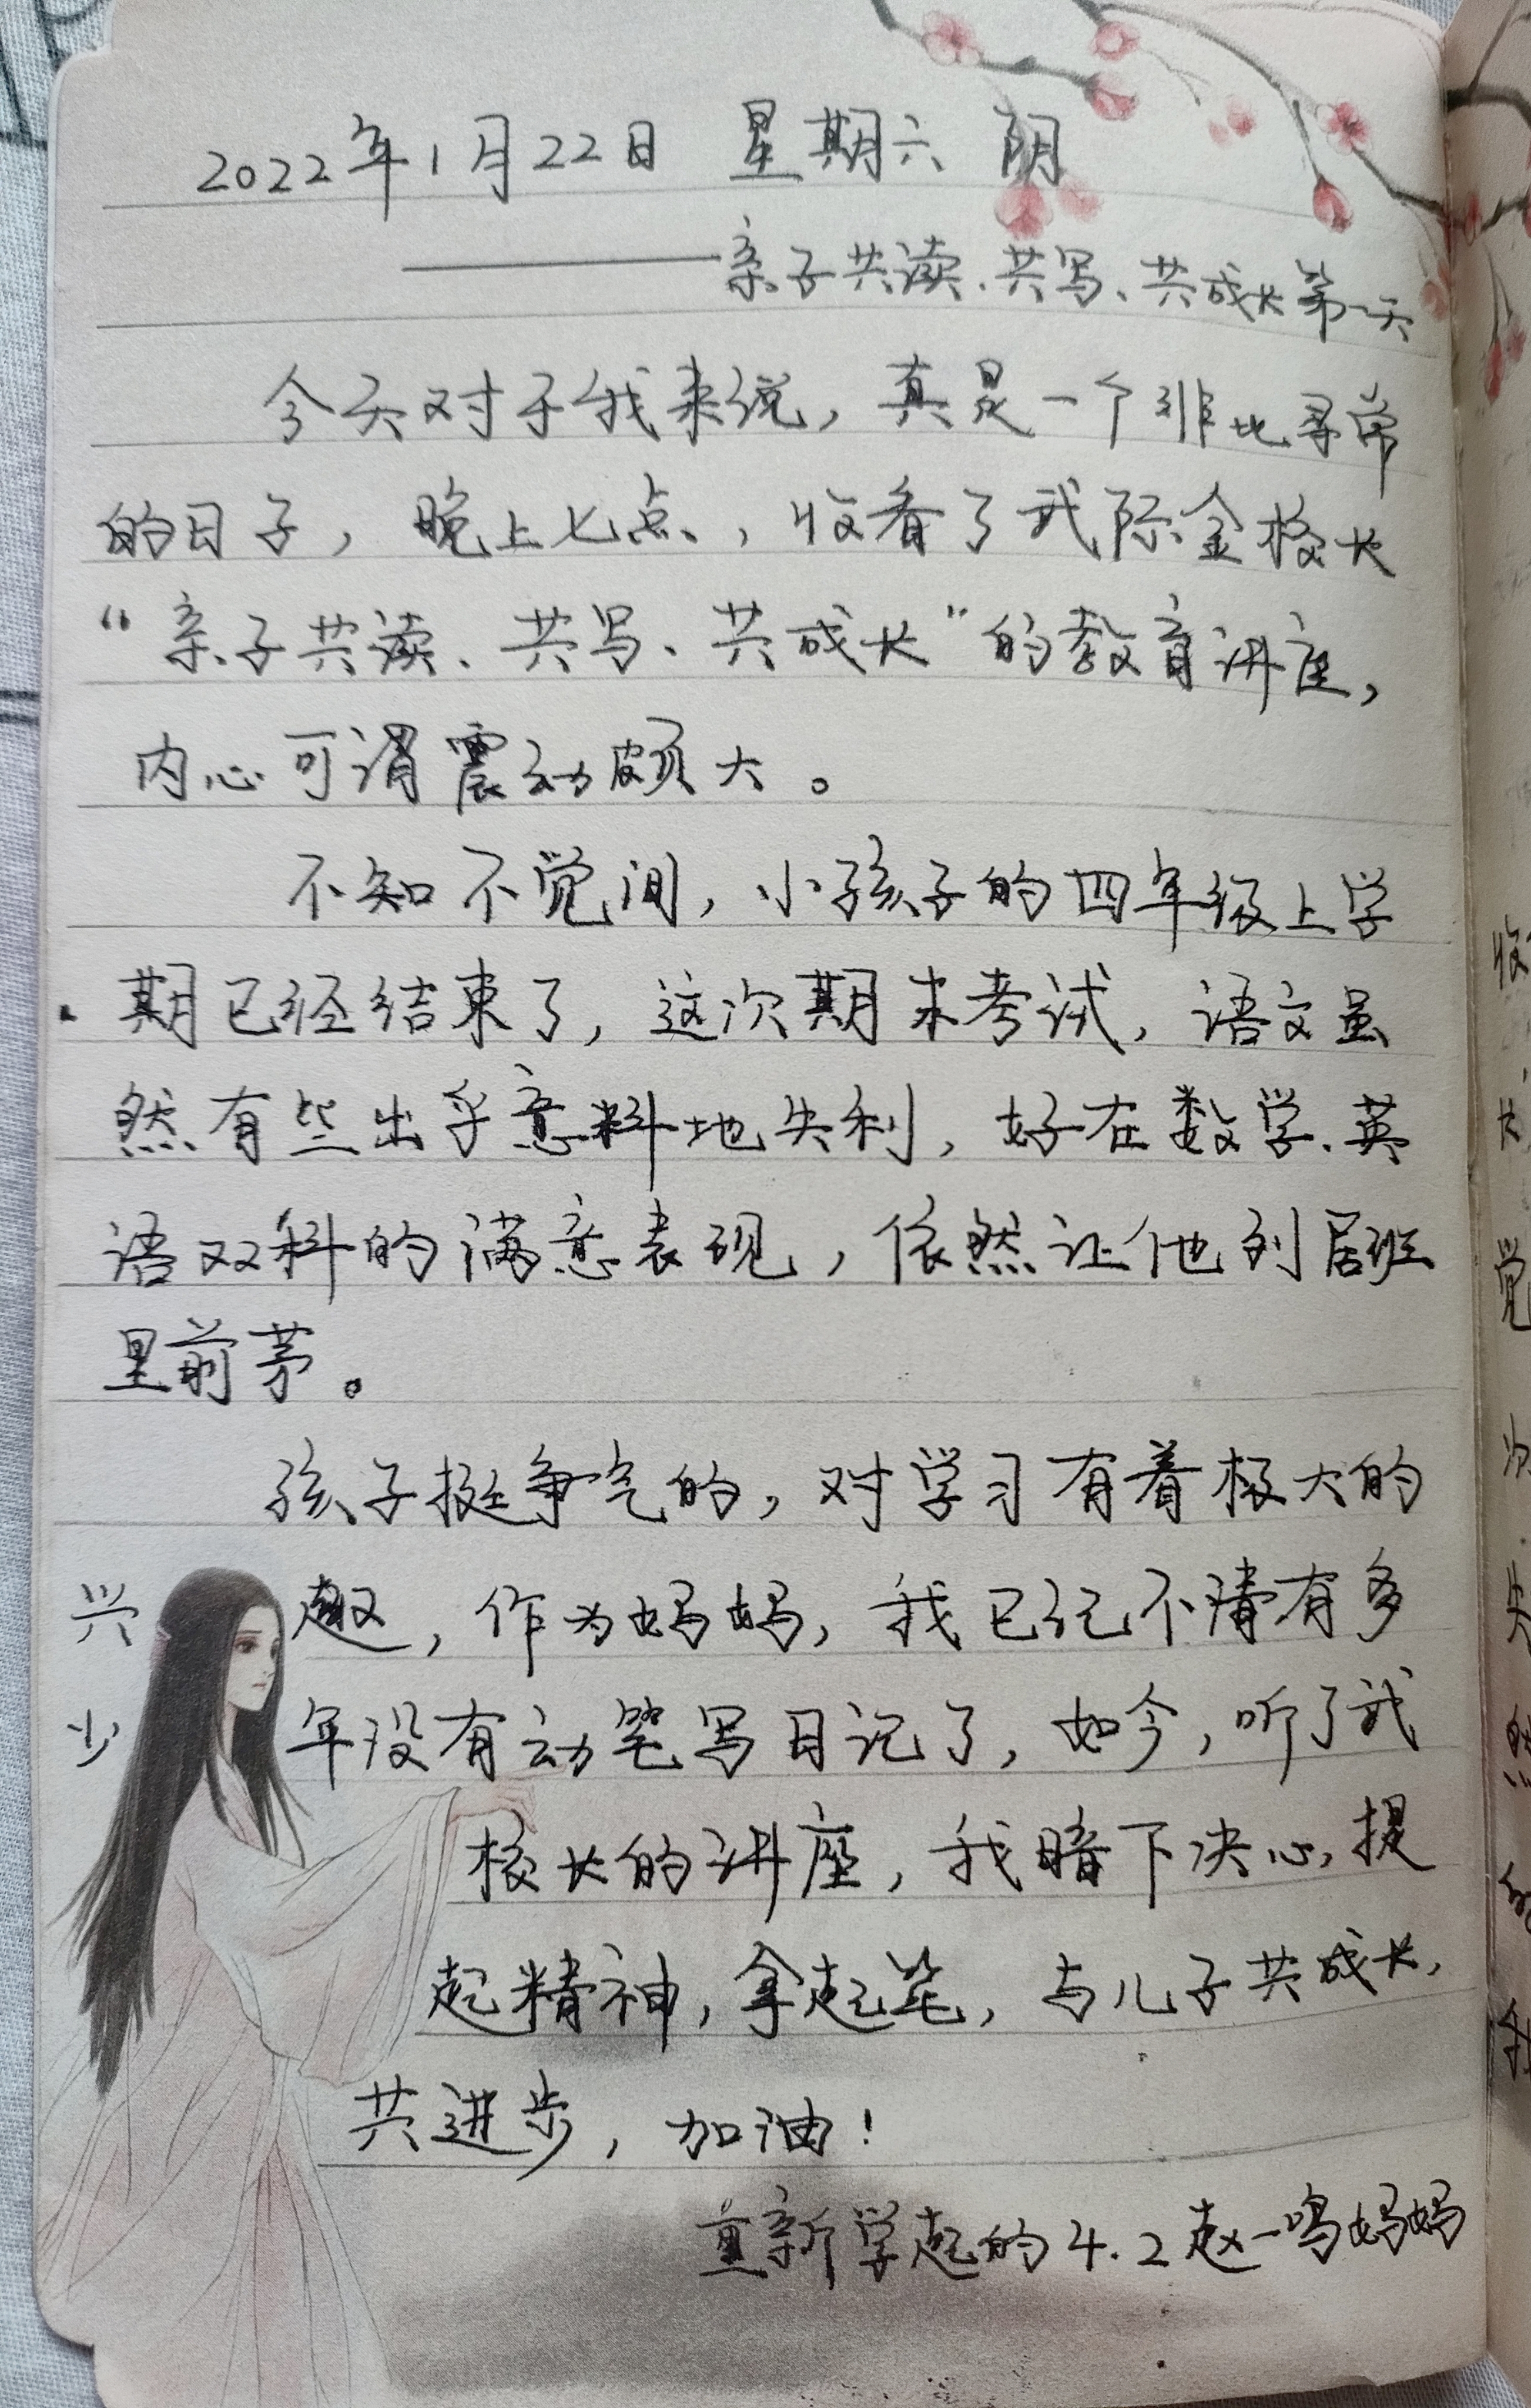 2022年1月22日 星期六 阴
——亲子共读、共写、共成长第一天
今天对于我来说，真是一个非比寻常
的日子，晚上七点，收看了武际金校长
“亲子共读、共写、共成长”的教育讲座，
内心可谓震动颇大。
不知不觉间，小孩子的四年级上学
期已经结束了，这次期末考试，语文虽
然有些出乎意料地失利，好在数学、英
语双科的满意表现，依然让他列居班
里前茅。
孩子挺争气的，对学习有着极大的
兴趣，作为妈妈，我已记不清有多
少年没有动笔写日记了，如今，听了武
校长的讲座，我暗下决心，提
起精神，拿起笔，与儿子共成长，
共进步，加油！
重新学起的4.2赵一鸣妈妈